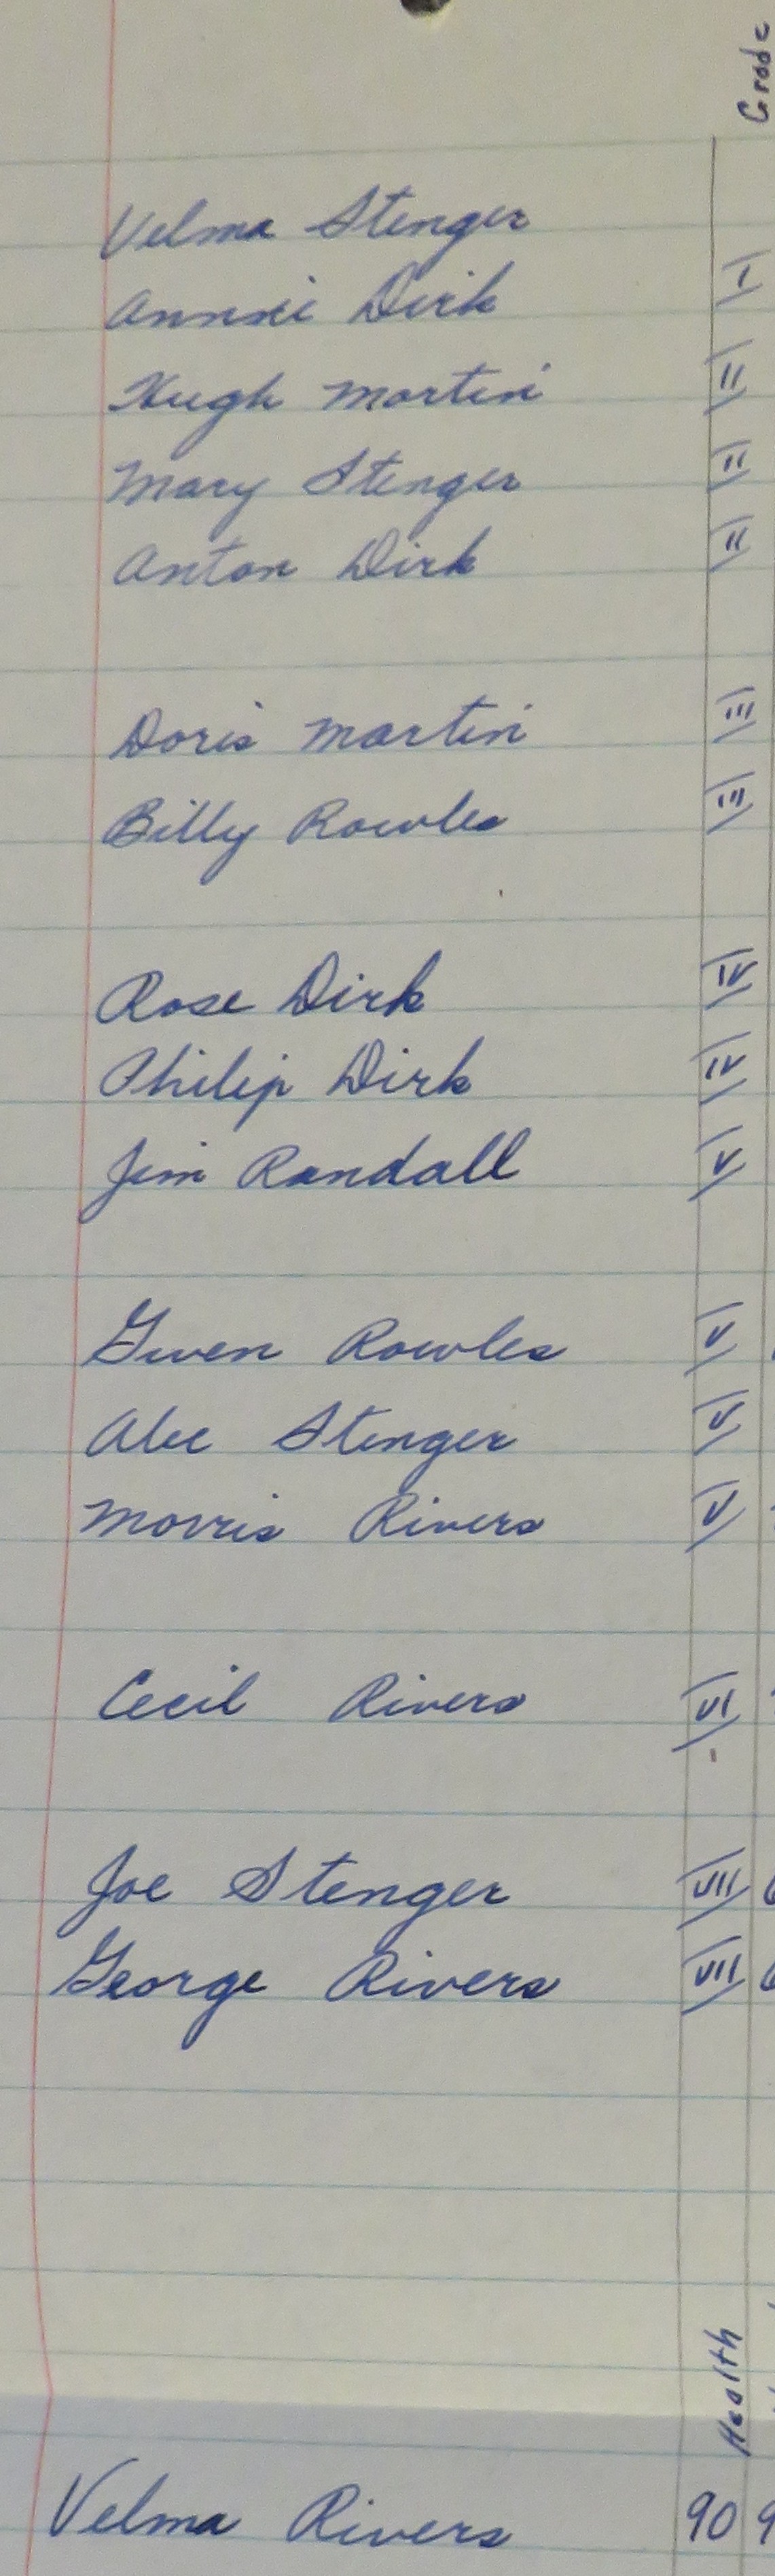 Grade
Velma Stenger
Annie Dirk I
Hugh Martin II
Mary Stenger II
Anton Dirk II
Doris Martin III
Billy Rowles III
Rose Dirk IV
Philip Dirk IV
Jim Randall V
Gwen Rowles V
Abe Stenger V
Morris Rivers V
Cecil Rivers VI
Joe Stenger VII
George Rivers VII
Health
Velma Rivers 90 9